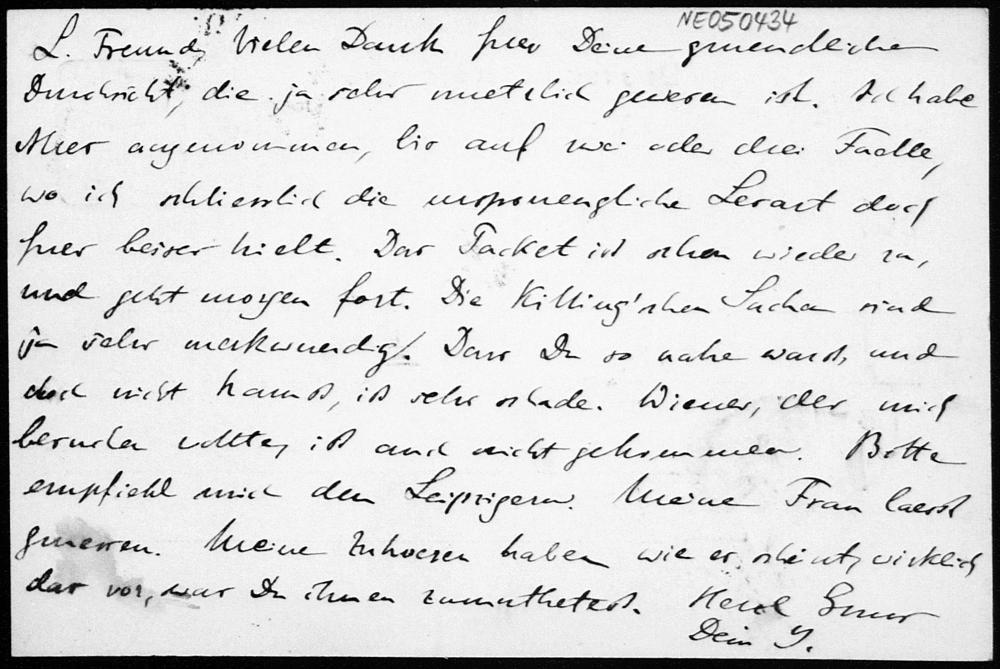 NE050434
L. Freund, Vielen Dank fuer Deine gruendliche
Durchsicht, die ja sehr nuetzlich gewesen ist. Ich habe
Alles angenommen, bis auf zwei oder drei Faelle,
wo ich schliesslich die urspruengliche Lesart doch
fuer besser hielt. Das Packet ist schon wieder zu,
und geht morgen fort. Die Killing'schen Sachen sind
ja sehr merkwuerdig. Dass Du so nahe warst, und
doch nicht kamst, ist sehr schade. Wiener, der mich
besuchen wollte, ist auch nicht gekommen. Bitte
empfiehl mich den Leipzigern. Meine Frau laesst
gruessen. Meine Zuhoerer haben wie es scheint, wirklich
das vor, was Du ihnen zumuthetest. Herzl Gruss
Dein